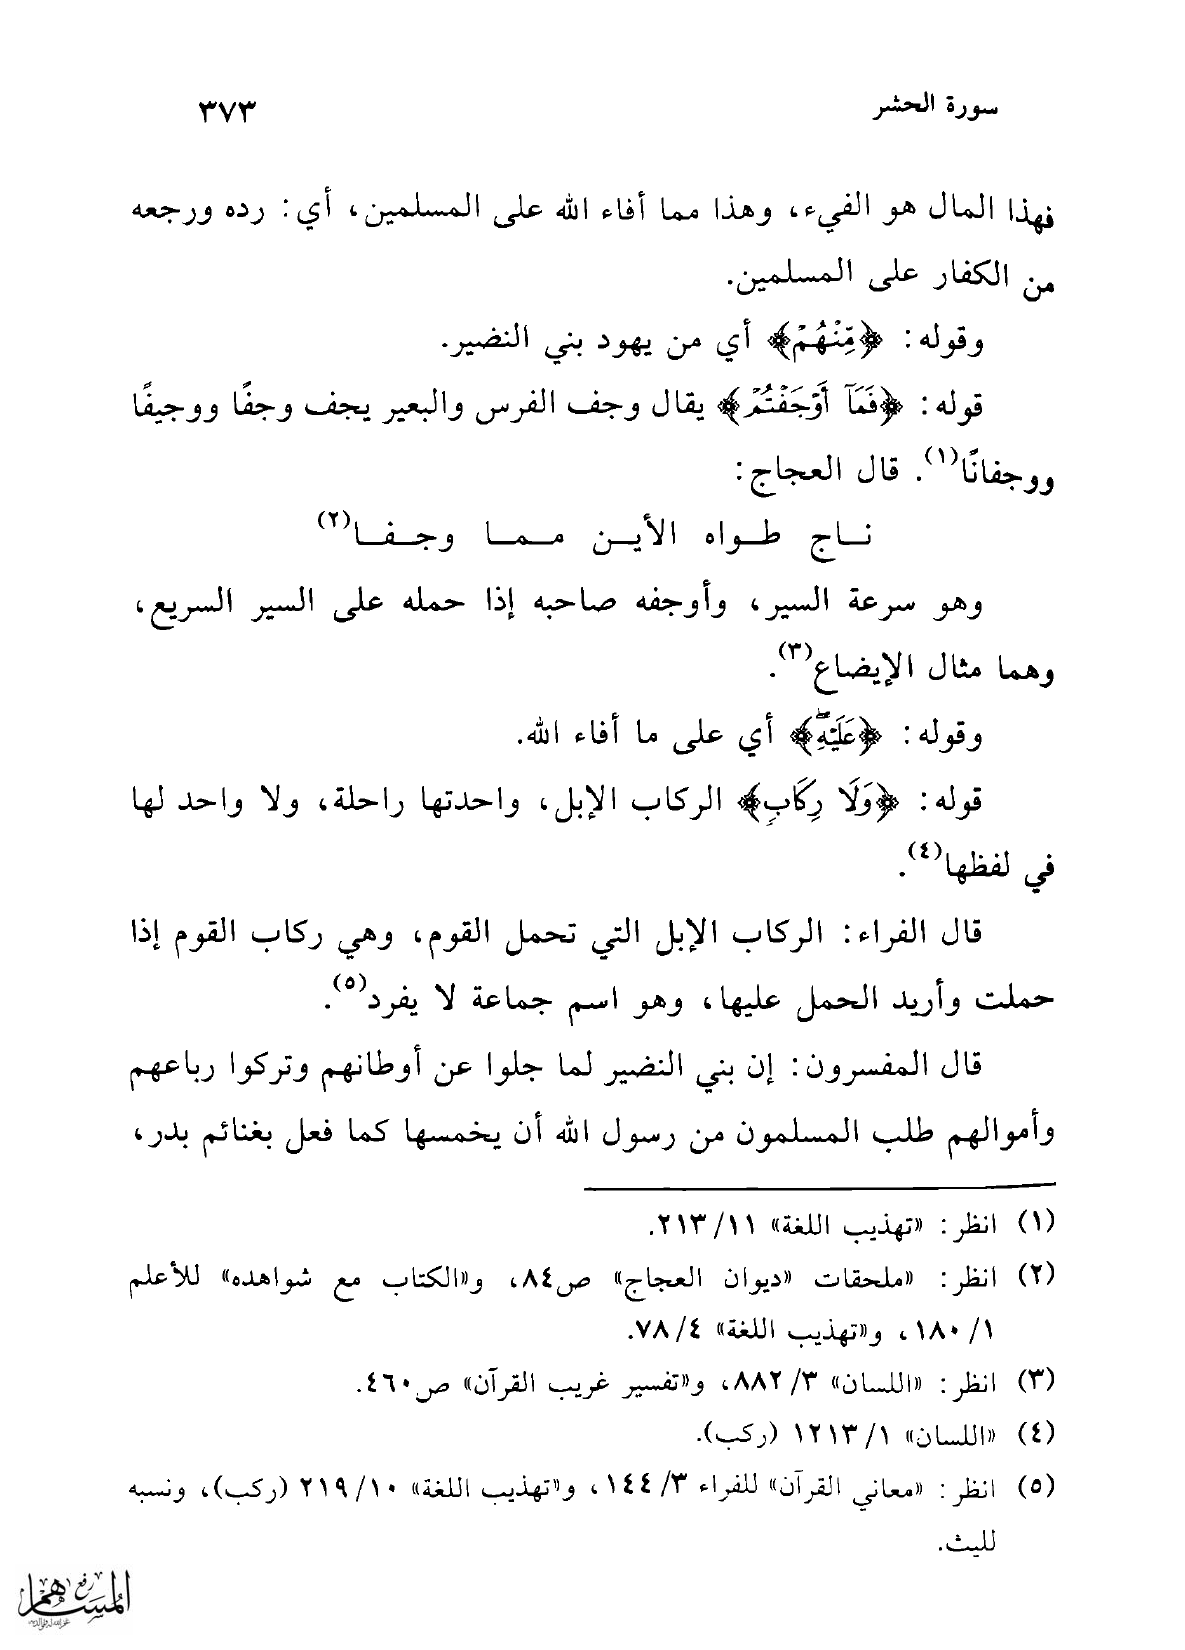 سورة الحشر ٣٧٣
فهذا المال هو الفيء، وهذا مما أفاء الله على المسلمين، أي: رده ورجعه
من الكفار على المسلمين.
وقوله: ﴿مِنْهُمْ﴾ أي من يهود بني النضير.
قوله: ﴿فَمَآ أَوْجَفْتُمْ﴾ يقال وجف الفرس والبعير يجف وجفًا ووجيفًا
ووجفانًا(١). قال العجاج:
نـاج طـواه الأيـن مـمـا وجـفـا(٢)
وهو سرعة السير، وأوجفه صاحبه إذا حمله على السير السريع،
وهما مثال الإيضاع(٣).
وقوله: ﴿عَلَيْهِ﴾ أي على ما أفاء الله.
قوله: ﴿وَلَا رِكَابٍ﴾ الركاب الإبل، واحدتها راحلة، ولا واحد لها
في لفظها(٤).
قال الفراء: الركاب الإبل التي تحمل القوم، وهي ركاب القوم إذا
حملت وأريد الحمل عليها، وهو اسم جماعة لا يفرد(٥).
قال المفسرون: إن بني النضير لما جلوا عن أوطانهم وتركوا رباعهم
وأموالهم طلب المسلمون من رسول الله أن يخمسها كما فعل بغنائم بدر،
(١) انظر: «تهذيب اللغة» ١١/ ٢١٣.
(٢) انظر: «ملحقات «ديوان العجاج» ص٨٤، و«الكتاب مع شواهده» للأعلم
١/ ١٨٠، و«تهذيب اللغة» ٤/ ٧٨.
(٣) انظر: «اللسان» ٣/ ٨٨٢، و«تفسير غريب القرآن» ص٤٦٠.
(٤) «اللسان» ١/ ١٢١٣ (ركب).
(٥) انظر: «معاني القرآن» للفراء ٣/ ١٤٤، و«تهذيب اللغة» ١٠/ ٢١٩ (ركب)، ونسبه
لليث.
رفع المساهم